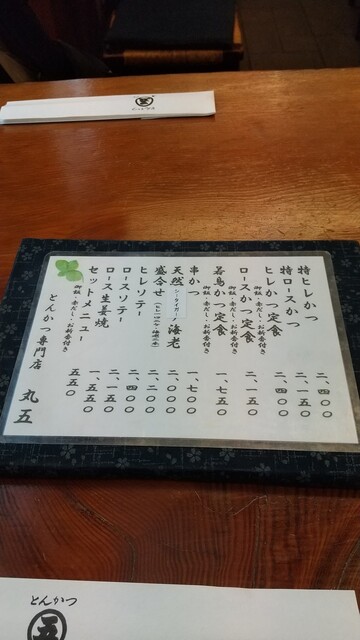 特ヒレかつ 二、四〇〇
特ロースかつ 二、一五〇
ヒレかつ定食 二、四〇〇
御飯・赤だし・お新香付き
ロースかつ定食 二、一五〇
御飯・赤だし・お新香付き
若鳥かつ定食 一、七五〇
御飯・赤だし・お新香付き
串かつ 一、七〇〇
天然シータイガー海老 二、〇〇〇
盛合せ 二、二〇〇
ヒレソテー 二、四〇〇
ロースソテー 二、一五〇
ロース生姜焼 一、五五〇
セットメニュー 五五〇
御飯・赤だし・お新香付き
とんかつ専門店 丸五
とんかつ
五